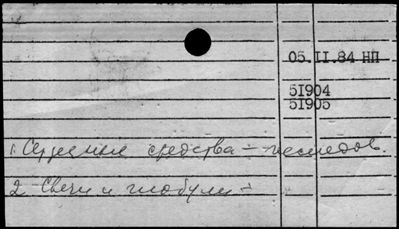 05.II.84 НП
51904
51905
1. Сердечные средства – исследов.
2 Свечи и глобули –